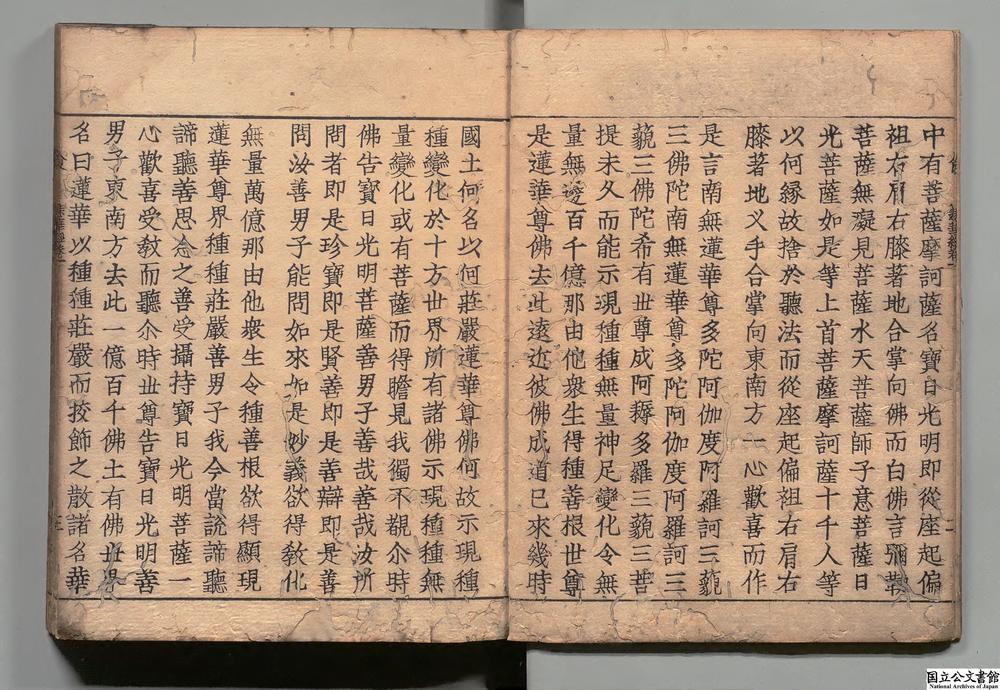 中有菩薩摩訶薩名寶日光明即從座起偏
袒右肩右膝著地合掌向佛而白佛言彌勒
菩薩無礙見菩薩水天菩薩師子意菩薩日
光菩薩如是等上首菩薩摩訶薩十千人等
以何緣故捨於聽法而從座起偏袒右肩右
膝著地叉手合掌向東南方一心歡喜而作
是言南無蓮華尊多陀阿伽度阿羅訶三藐
三佛陀南無蓮華尊多陀阿伽度阿羅訶三
藐三佛陀希有世尊成阿耨多羅三藐三菩
提未久而能示現種種無量神足變化令無
量無邊百千億那由他衆生得種善根世尊
是蓮華尊佛去此遠近彼佛成道已來幾時
二
國土何名以何莊嚴蓮華尊佛何故示現種
種變化於十方世界所有諸佛示現種種無
量變化或有菩薩而得瞻見我獨不覩尒時
佛告寶日光明菩薩善男子善哉善哉汝所
問者即是珍寶即是賢善即是善辯即是善
問汝善男子能問如來如是妙義欲得教化
無量萬億那由他衆生令種善根欲得顯現
蓮華尊界種種莊嚴善男子我今當說諦聽
諦聽善思念之善受攝持寶日光明菩薩一
心歡喜受教而聽尒時世尊告寶日光明善
男子東南方去此一億百千佛土有佛世界
名曰蓮華以種種莊嚴而挍飾之散諸名華
三
国立公文書館
National Archives of Japan